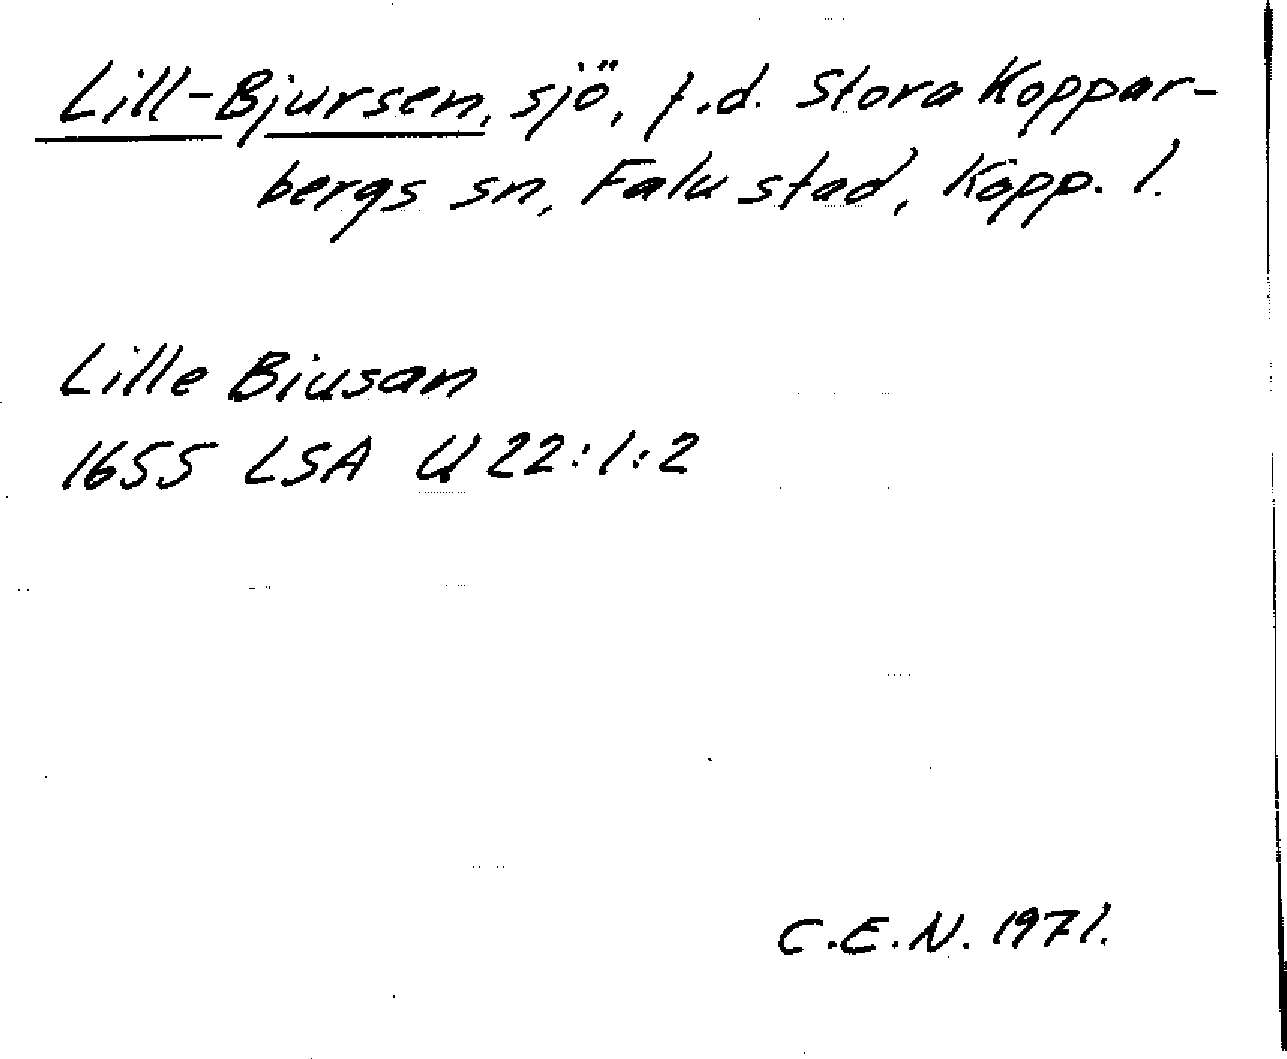 Lill-Bjursen, sjö, f.d. Stora Koppar-
bergs sn, Falu stad, Kopp. l.
Lille Biusan
1655 LSA U 22:1:2
C.E.N. 1971.